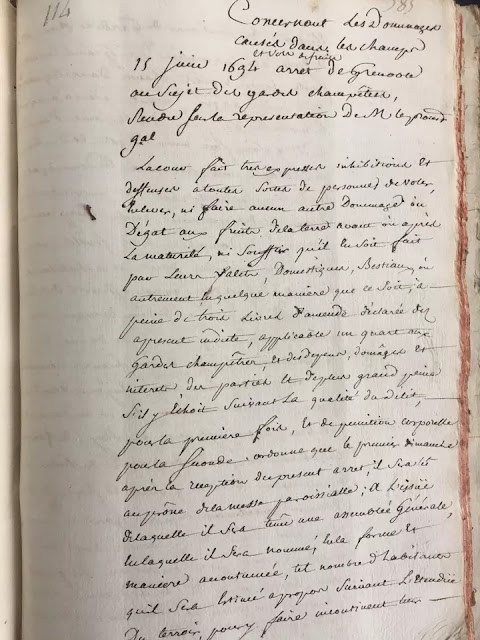 114
Concernant les Dommages
causés dans les champs
et vols de fruits
15 juin 1694 arret de Grenoble
au Sujet des gardes champêtres,
Rendre sur la representation de M le
gal
La cour fait tres expresses inhibitions et
deffenses a toutes Sortes de personnes de voler,
ni faire aucun autre Dommage ou
Dégat aux fruits de la terre avant ou après
la maturité, ni Souffrir qu'il en Soit fait
par Leurs Valets, Domestiques, Bestiaux, ou
autrement en quelque manière que ce Soit, a
peine de trois Livres d'amende déclarée dez
apresent indicte, applicable un quart aux
Gardes champêtres et des depens, domages et
interets des parties et de plus grand peine
S'il y Echoit Suivant La qualité du Delit,
pour la première fois, Et de punition corporelle
pour la Seconde ordonne que le premier dimanche
après la reception du present arret, il Sera lû
au prône de la messe paroissialle, a L'issuë
de laquelle il Sera tenu une assemblée Générale,
en laquelle il Sera nommé, en la forme et
manière accoutumée, tel nombre d'habitants
qu'il Sera Estimé apropos Suivant L'etenduë
Du terroir, pour y faire incontinent leur